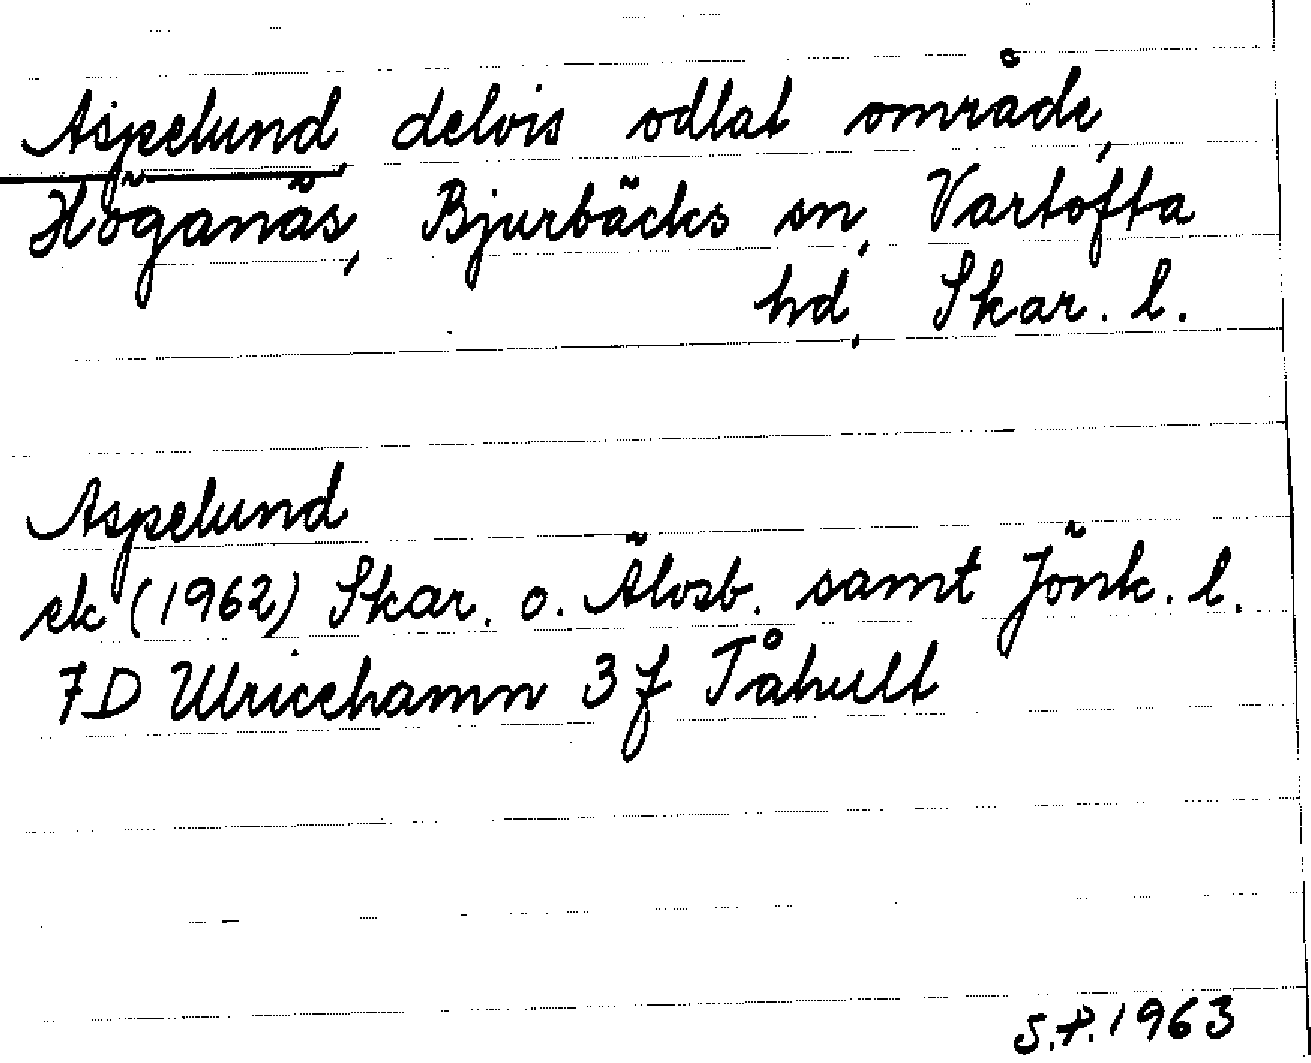 Aspelund, delvis odlat område,
Höganäs, Bjurbäcks sn, Vartofta
hd, Skar. l.
Aspelund
ek (1962) Skar. o. Älvsb. samt Jönk. l.
7D Ulricehamn 3f Tåhult
S.P. 1963